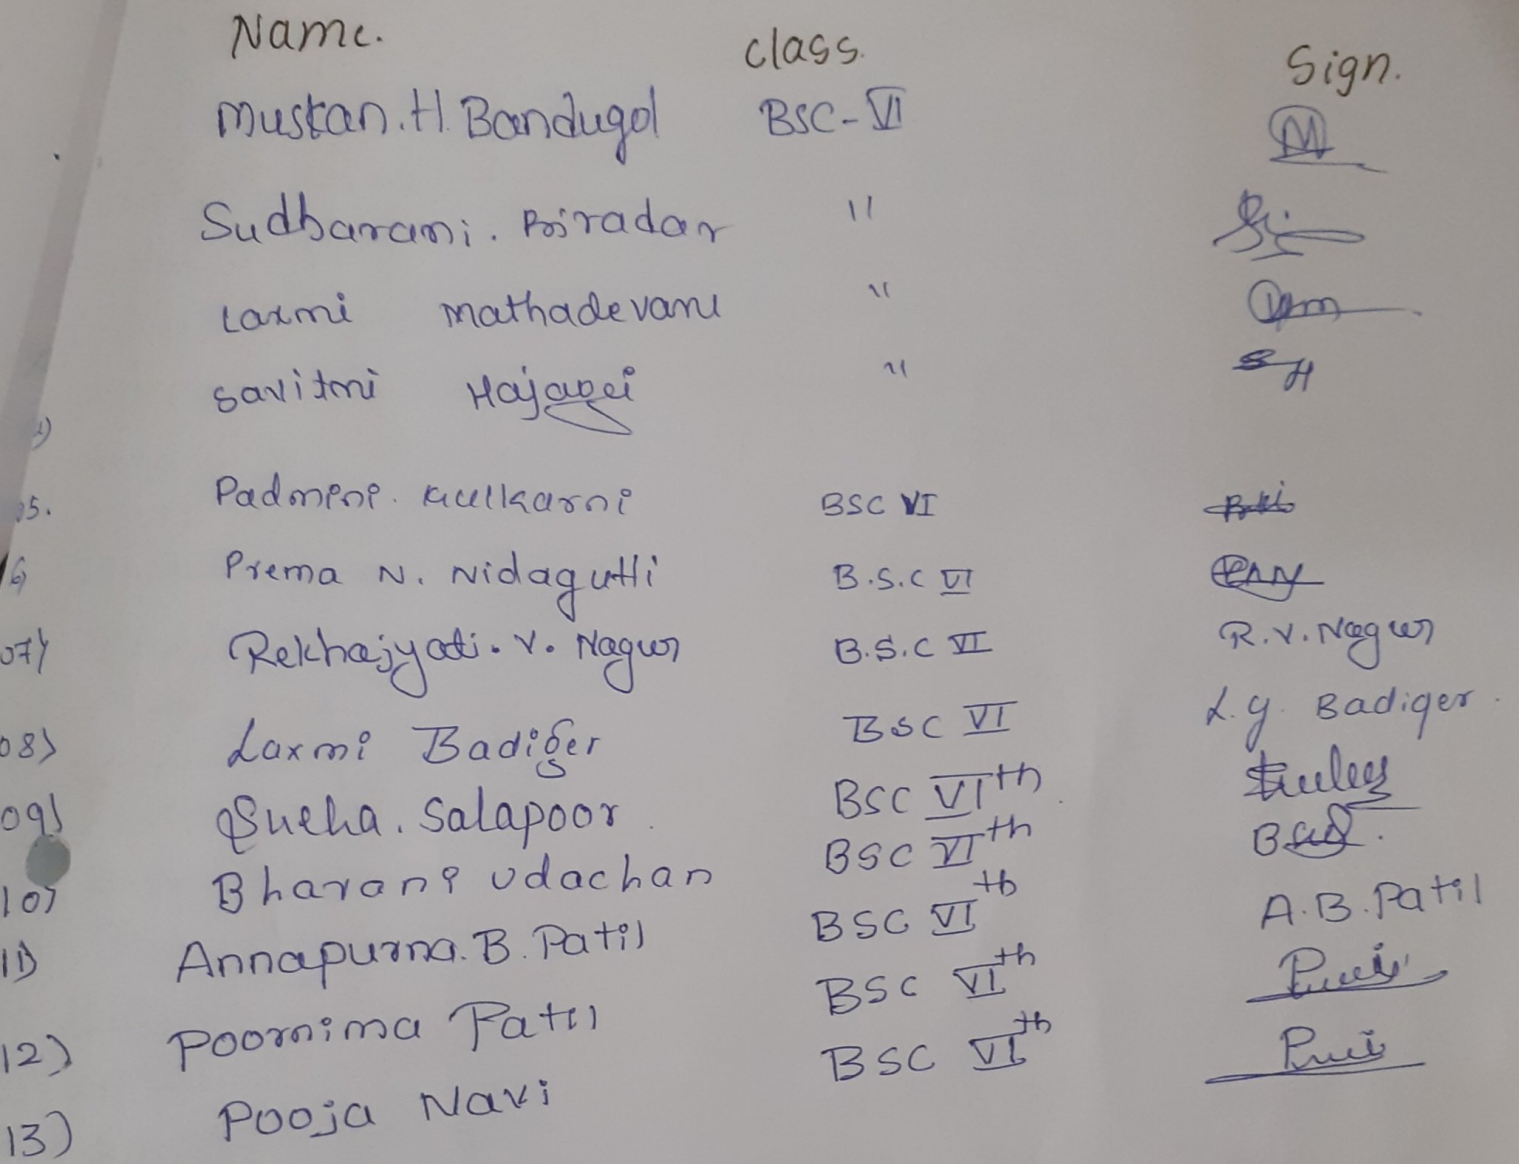 Name. class. Sign.
Muskan.H.Bandugol BSC-VI
Sudharani. Biradar "
Laxmi Mathadevaru "
Savitri "
05. Padmini. Kulkarni BSC VI
6) Prema N. Nidagutti B.S.C VI
07) Rekhajyoti. V. Nagur B.S.C VI R.V.Nagur
08) Laxmi Badiger BSC VI L.G. Badiger
09) Salapoor BSC VIth
10) Bhavani Udachan BSC VIth
11) Annapurna.B.Patil BSC VIth A.B.Patil
12) Poornima Patil BSC VIth
13) Pooja Navi BSC VIth